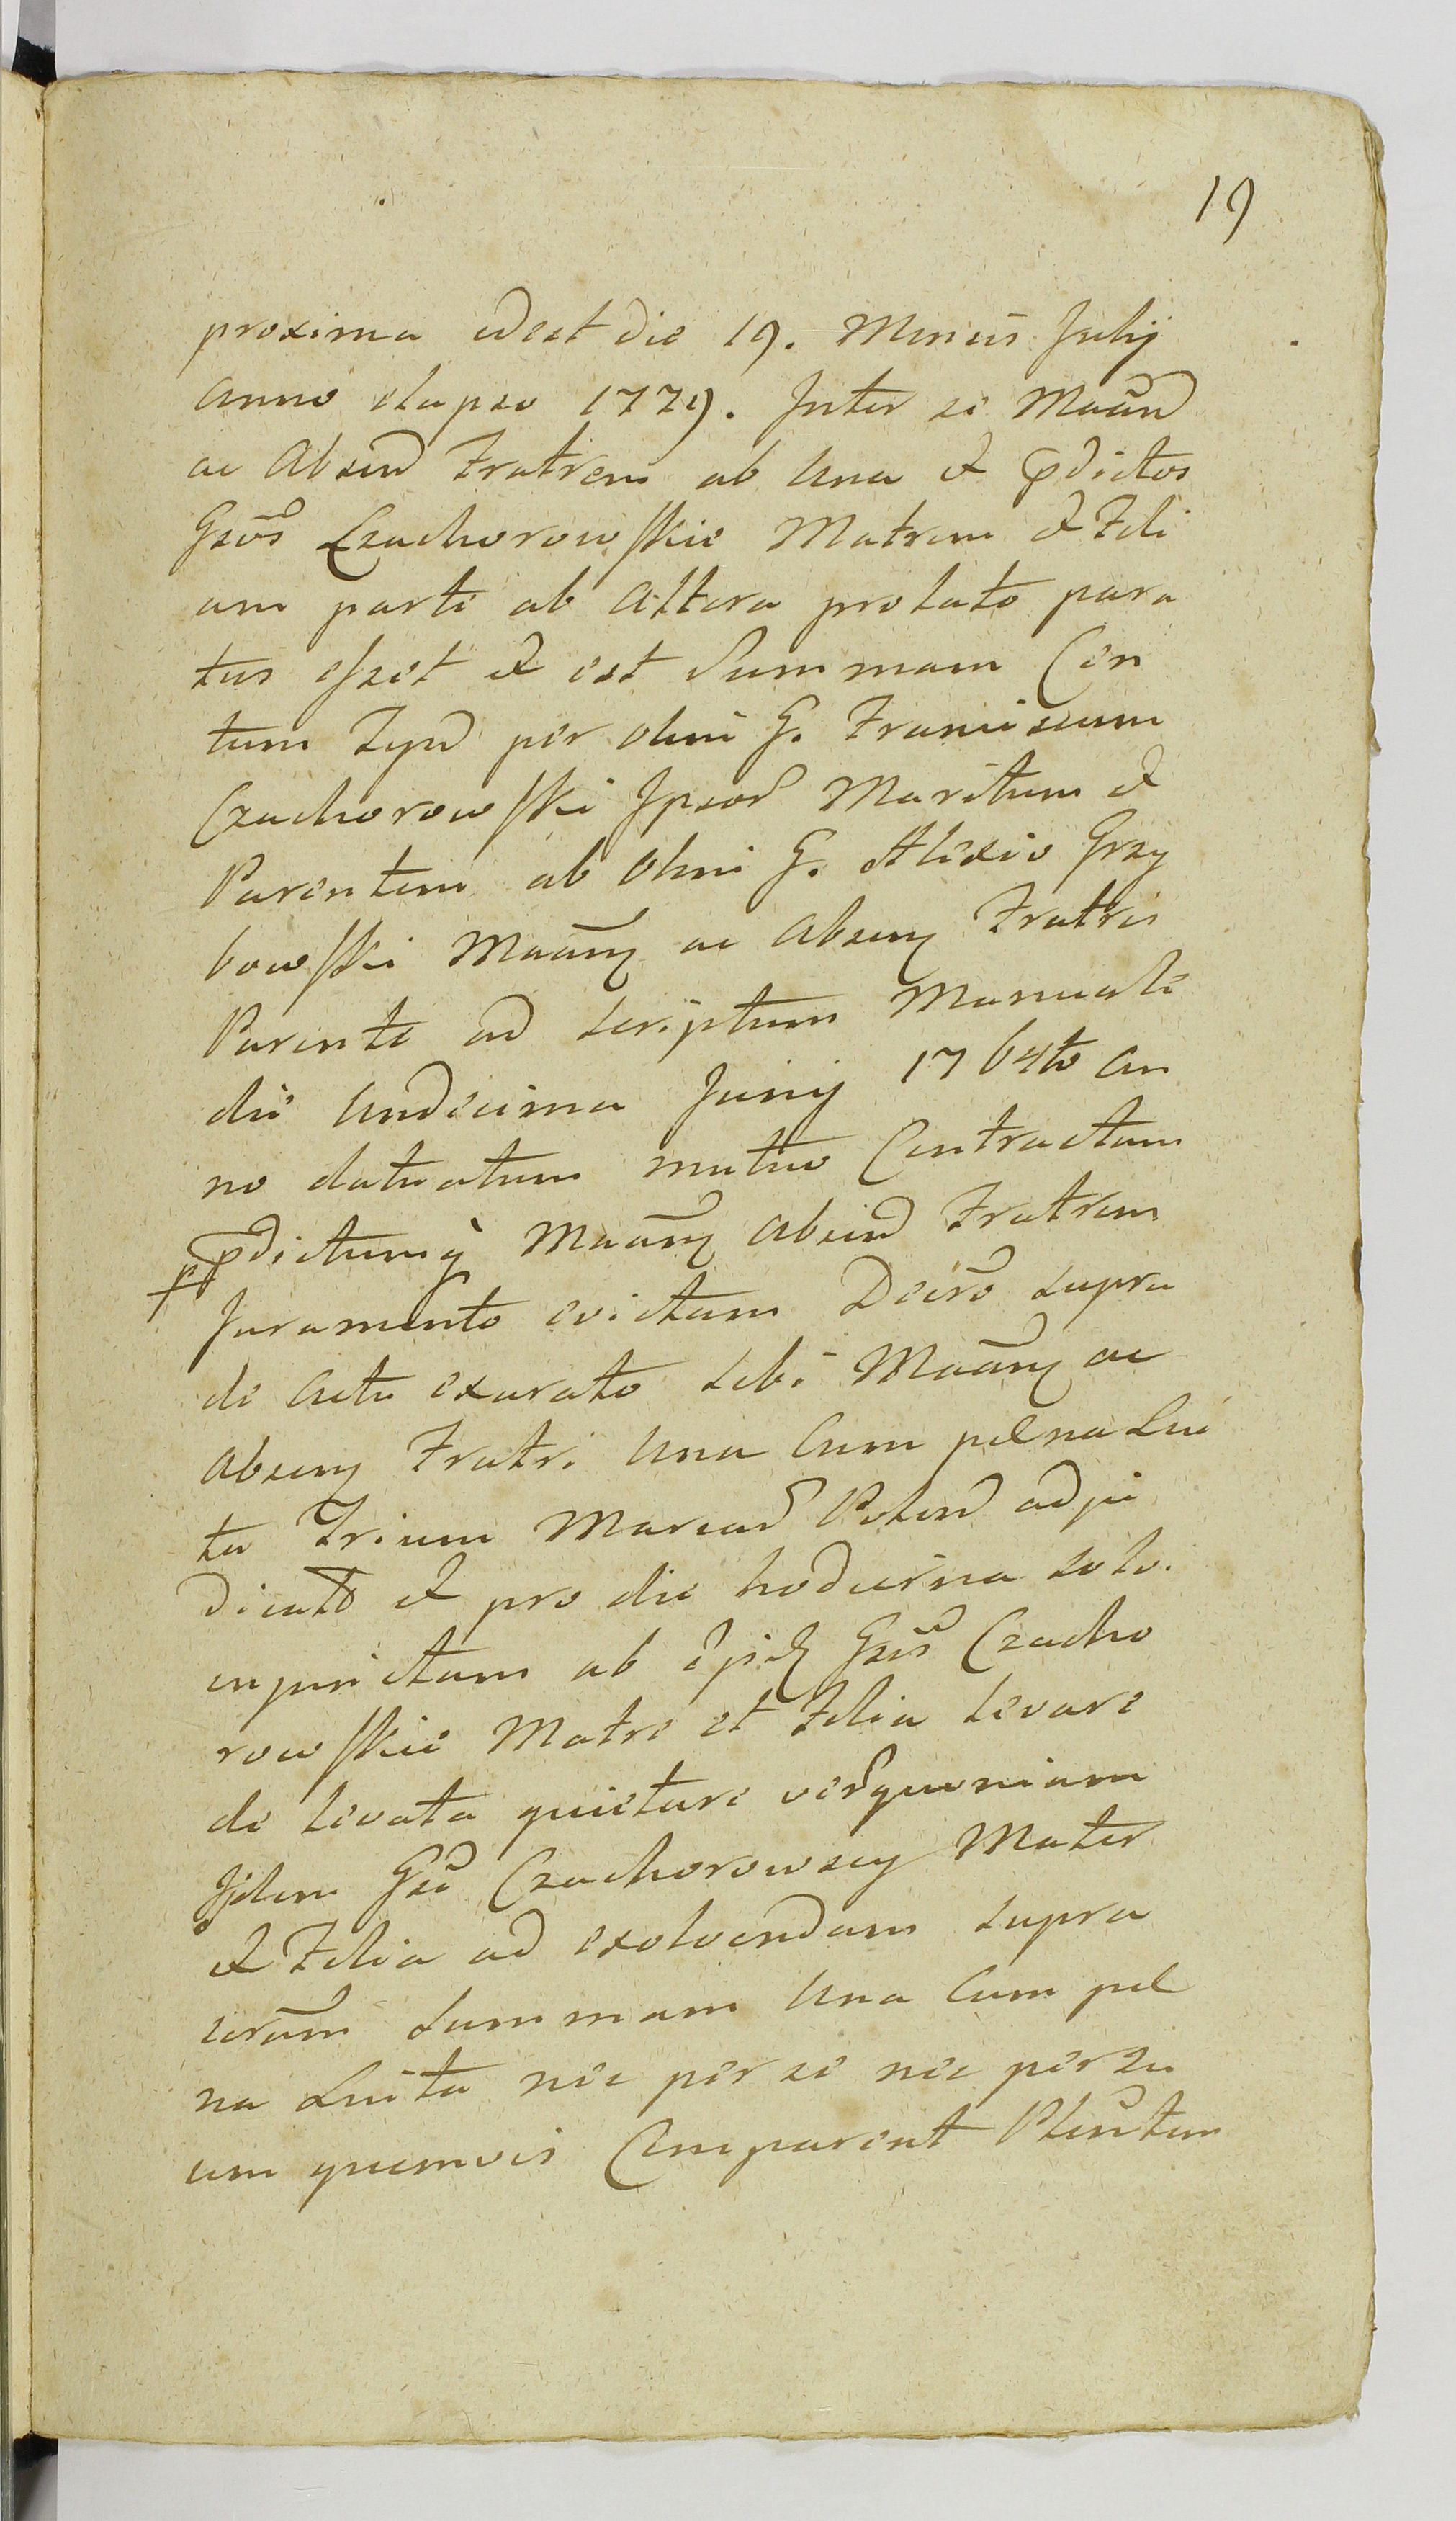 19
proxima idest die 19. Mensis Julij
anno elapso 1779. Inter se Maand
ac Absend Fratrem ab una et p̃dictos
Gsos Czachorowskie Matrem et Fili
am parte ab altera prolato para
tus esset et est Summam Cen
tum Tynd per olim G. Franciscum
Czachorowski Ipsor Maritum et
Parentem ab olim G. Alexio Grzy
bowski Maanq ac absenq Fratris
Parente ad scriptum Manuale
die undecima Junij 1764to an
no datuatum mutuo Contractam
p̃dictumq Maanq absend Fratrem
Juramento evictam Decro supra
de actu exarato sibi Maanq ac
absenq Fratri una cum pœna Lui
ta Trium Marcar Polond adju
dicato et pro die hodierna solo.
injunctam ab Gsis Czacho
rowskie Matre et Filia levare
de levata quietare verquoniam
Ijdem Gsi Czachorowscy Mater
et Filia ad exolvendam supra
scram summam una cum pœ
na Luita nec per se nec per su
um quemvis Comparent Plentem